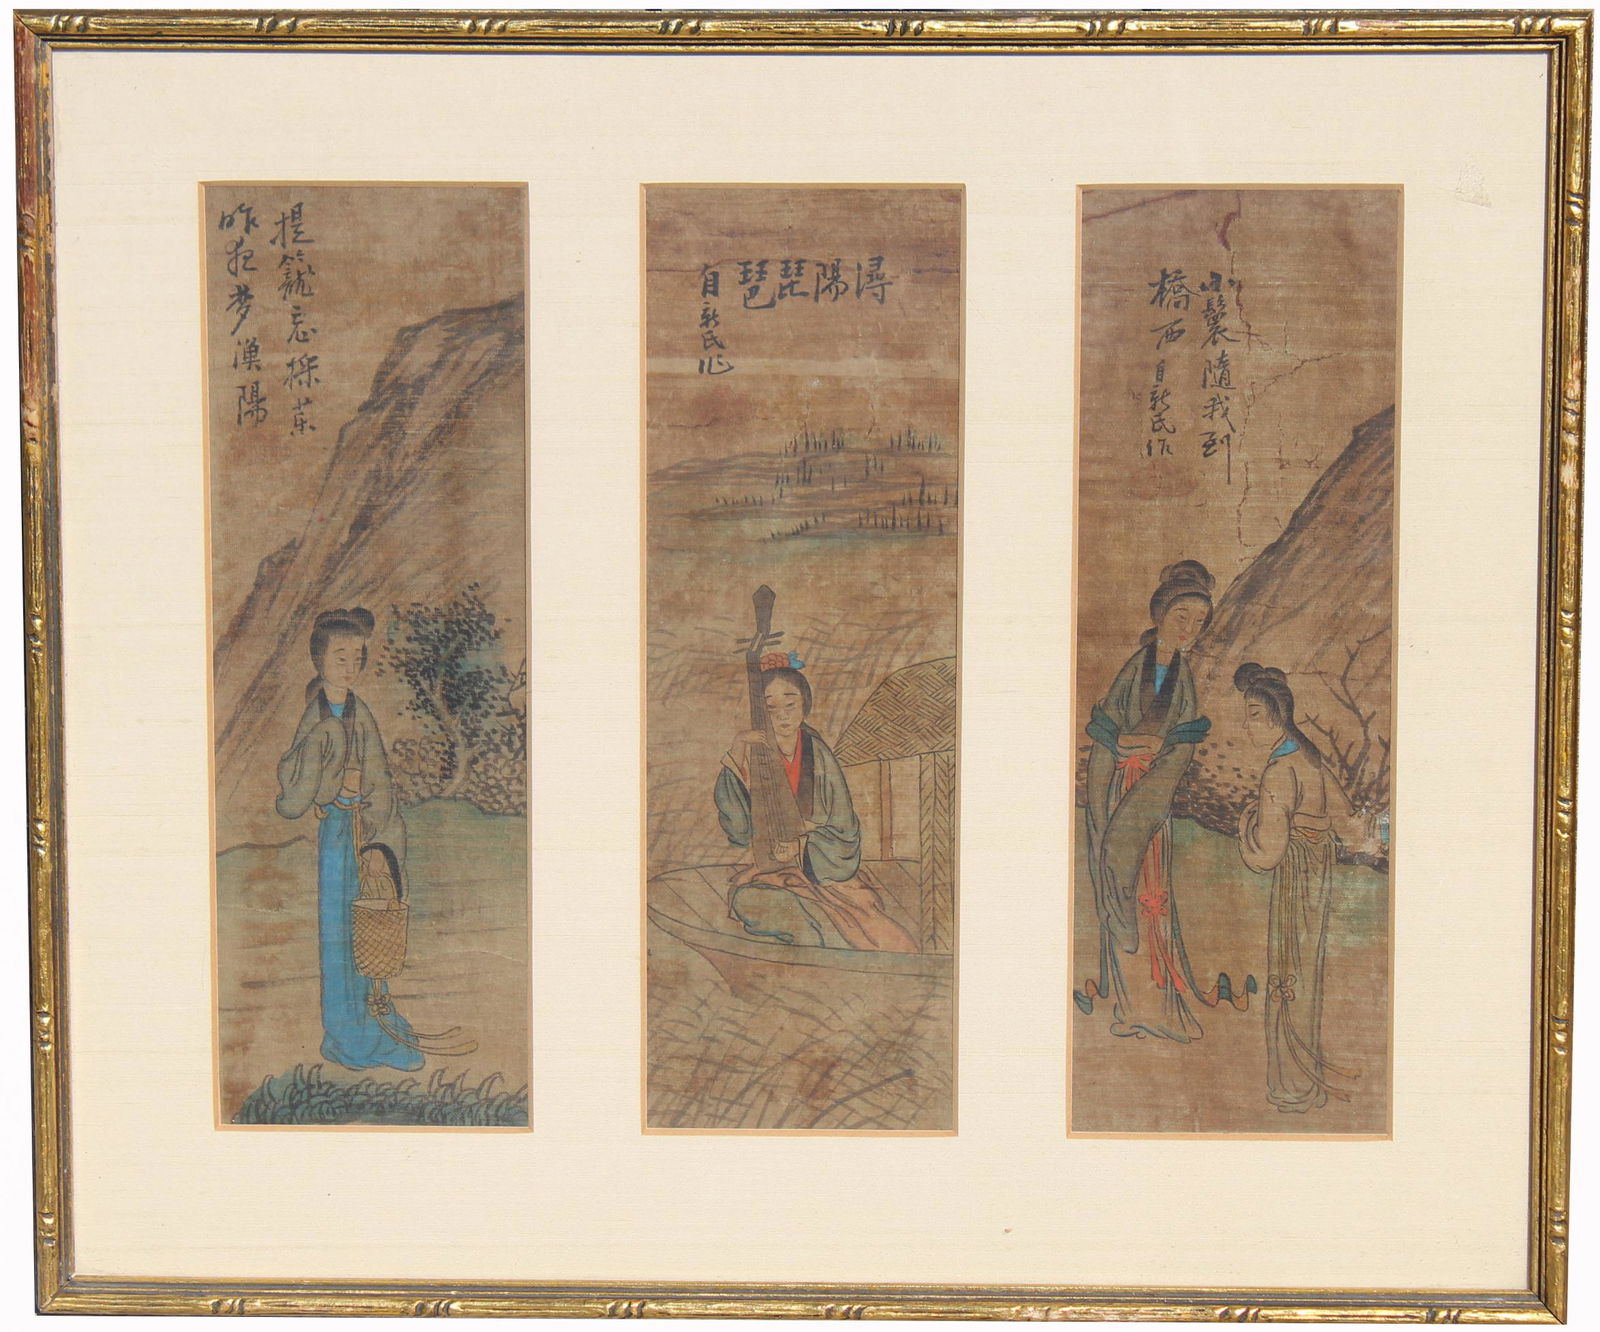 提籠忘採葉
昨夜夢漁陽
潯陽琵琶
自新氏作
小鬟隨我到
橋西
自新氏作